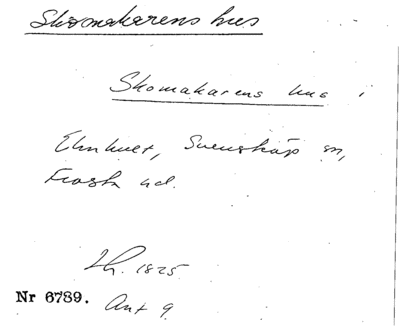 Skomakarens hus
Skomakarens hus i
Elmhult, Svensköp sn,
Frosta hd.
Lh. 1825
Nr 6789. Ant 9